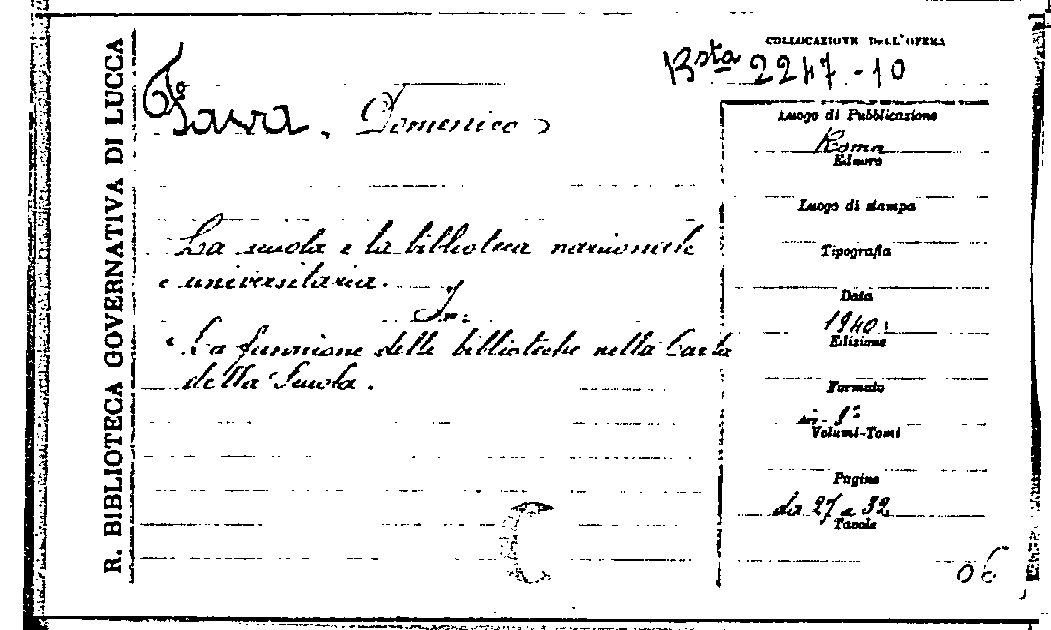 R. BIBLIOTECA GOVERNATIVA DI LUCCA
COLLOCAZIONE DELL'OPERA
Bsta 2247-10
Fava, Domenico
La scuola e la biblioteca nazionale
e universitaria.
In:
La funzione delle biblioteche nella Carta
della Scuola.
Luogo di Pubblicazione
Roma
Editore
Luogo di stampa
Tipografia
Data
1940
Edizione
Formato
in-8°
Volumi-Tomi
Pagine
da 27 a 32
Tavole
06